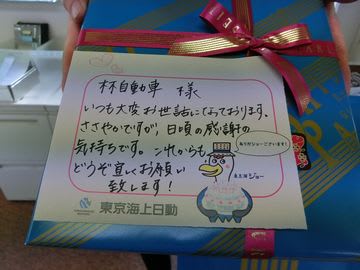 林自動車 様
いつも大変お世話になっております。
ささやかですが、日頃の感謝の
気持ちです。これからも
どうぞ宜しくお願い
致します!
ありがジョーございます!
東京海上日動